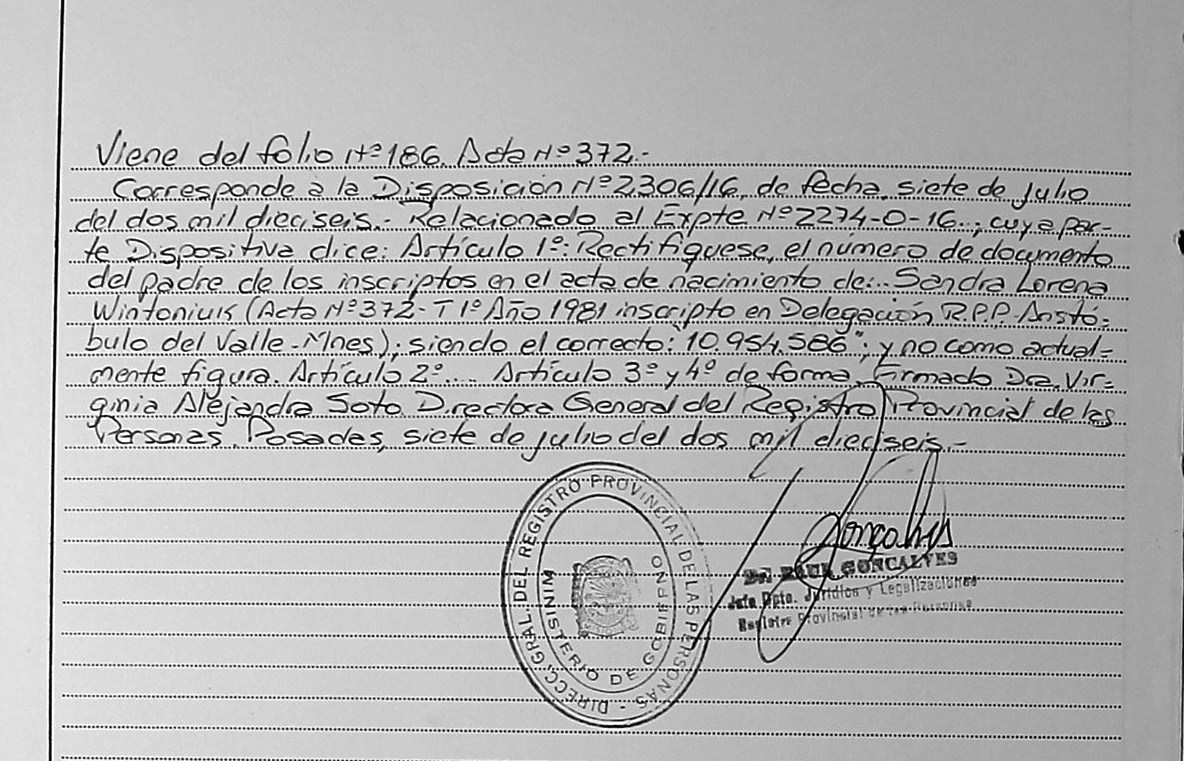 Viene del folio Nº 186. Acta Nº 372.-
Corresponde a la Disposición Nº 2306/16, de fecha, siete de julio
del dos mil dieciseis.- Relacionado al Expte Nº 2274-O-16.., cuya par-
te Dispositiva dice: Artículo 1º: Rectifíquese, el número de documento
del padre de los inscriptos en el acta de nacimiento de:.. Sandra Lorena
Wintoniuk (Acta Nº 372- T 1º Año 1981 inscripto en Delegación R.P.P. Aristó-
bulo del Valle-Mnes); siendo el correcto: "10.954.586"; y no como actual-
mente figura. Artículo 2º.... Artículo 3º y 4º de forma. Firmado Dra. Vir-
ginia Alejandra Soto. Directora General del Registro Provincial de las
Personas. Posadas, siete de julio del dos mil dieciseis.-
DIRECC. GRAL. DEL REGISTRO PROVINCIAL DE LAS PERSONAS
MINISTERIO DE GOBIERNO
Gonçalves
GONCALVES
Jefe Dpto. Jurídico y Legalizaciones
Registro Provincial de las Personas